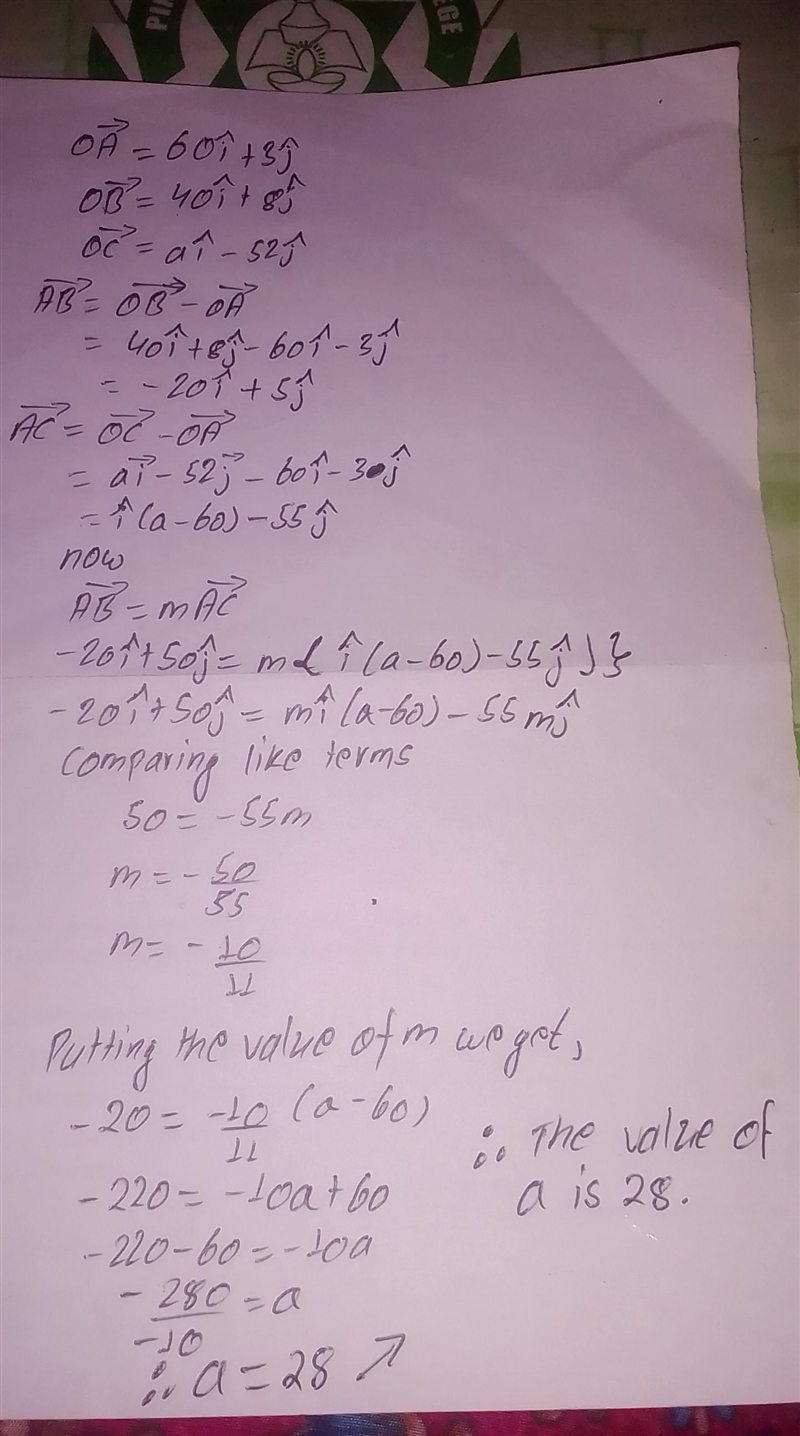 PI EGE
OA→ = 60î + 3ĵ
OB→ = 40î + 8ĵ
OC→ = aî - 52ĵ
AB→ = OB→ - OA→
= 40î + 8ĵ - 60î - 3ĵ
= -20î + 5ĵ
AC→ = OC→ - OA→
= ai→ - 52j→ - 60î - 30ĵ
= î(a-60) - 55ĵ
now
AB→ = mAC→
-20î + 50ĵ = m{ î(a-60) - 55ĵ)}
-20î + 50ĵ = mî(a-60) - 55mĵ
Comparing like terms
50 = -55m
m = - 50/55
m = - 10/11
Putting the value of m we get,
-20 = -10/11 (a-60)
-220 = -10a + 60
-220 - 60 = -10a
- 280/-10 = a
∴ a = 28
∴ The value of
a is 28.